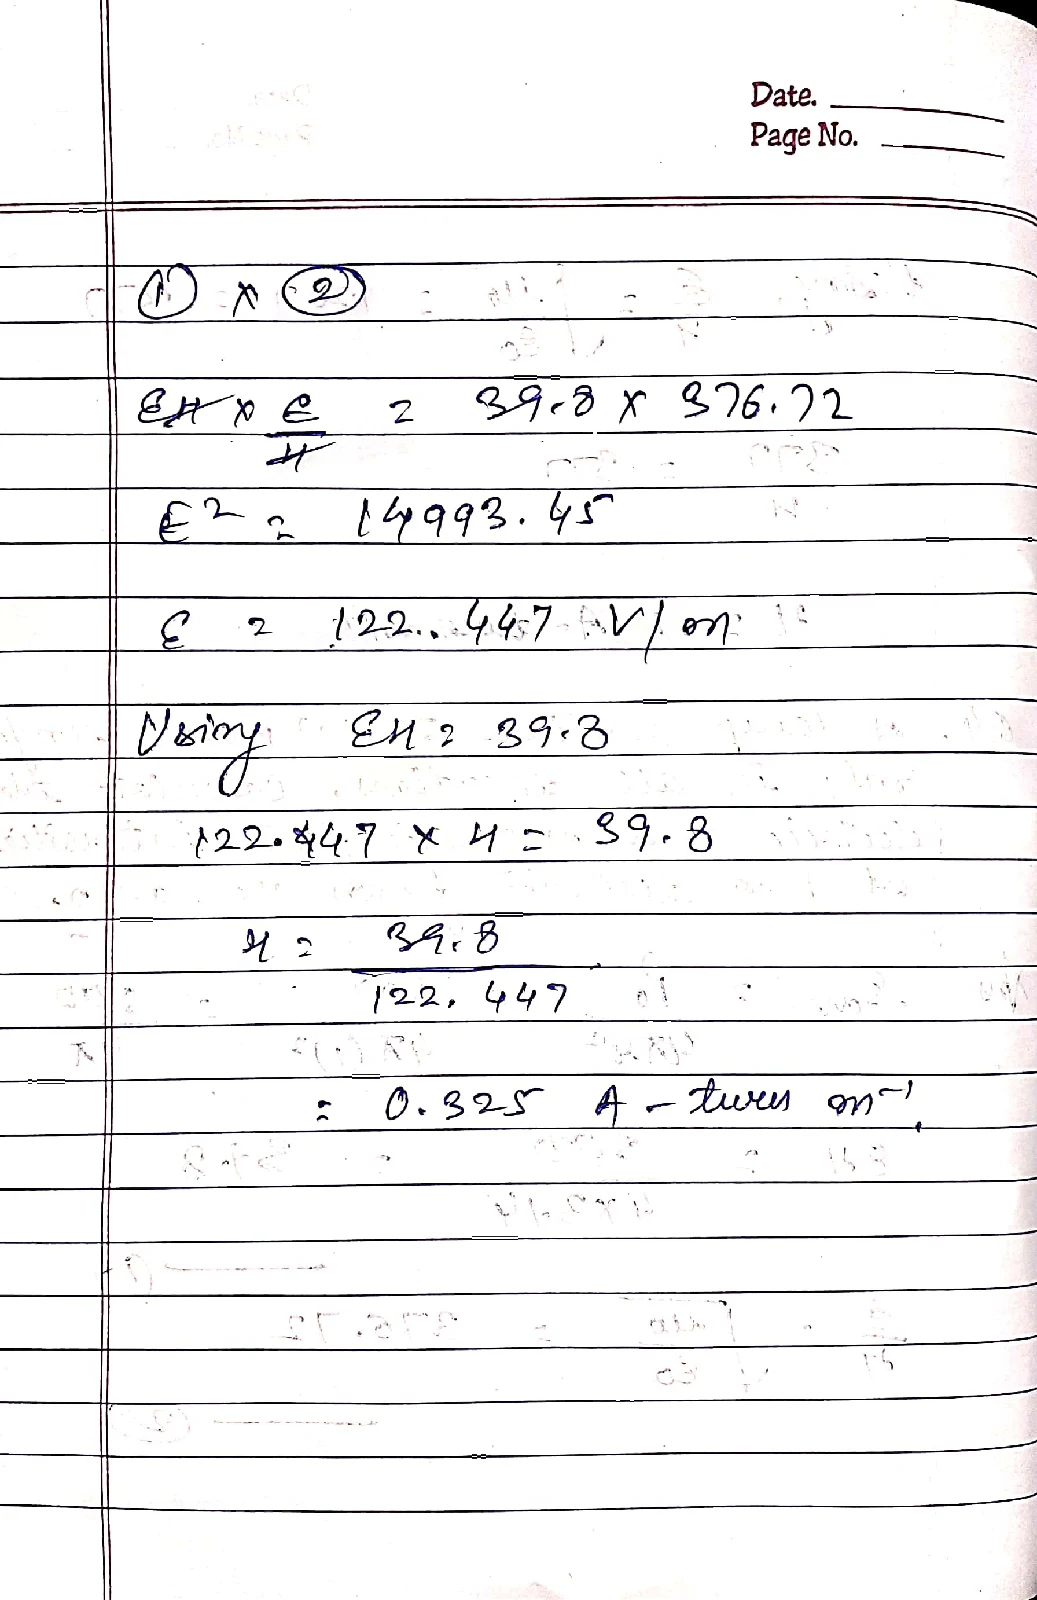 Date.
Page No.
① × ②
EH × E/H = 39.8 × 376.72
E² = 14993.45
E = 122.447 V/m
Using EH = 39.8
122.447 × H = 39.8
H = 39.8
122.447
= 0.325 A - turns m⁻¹.